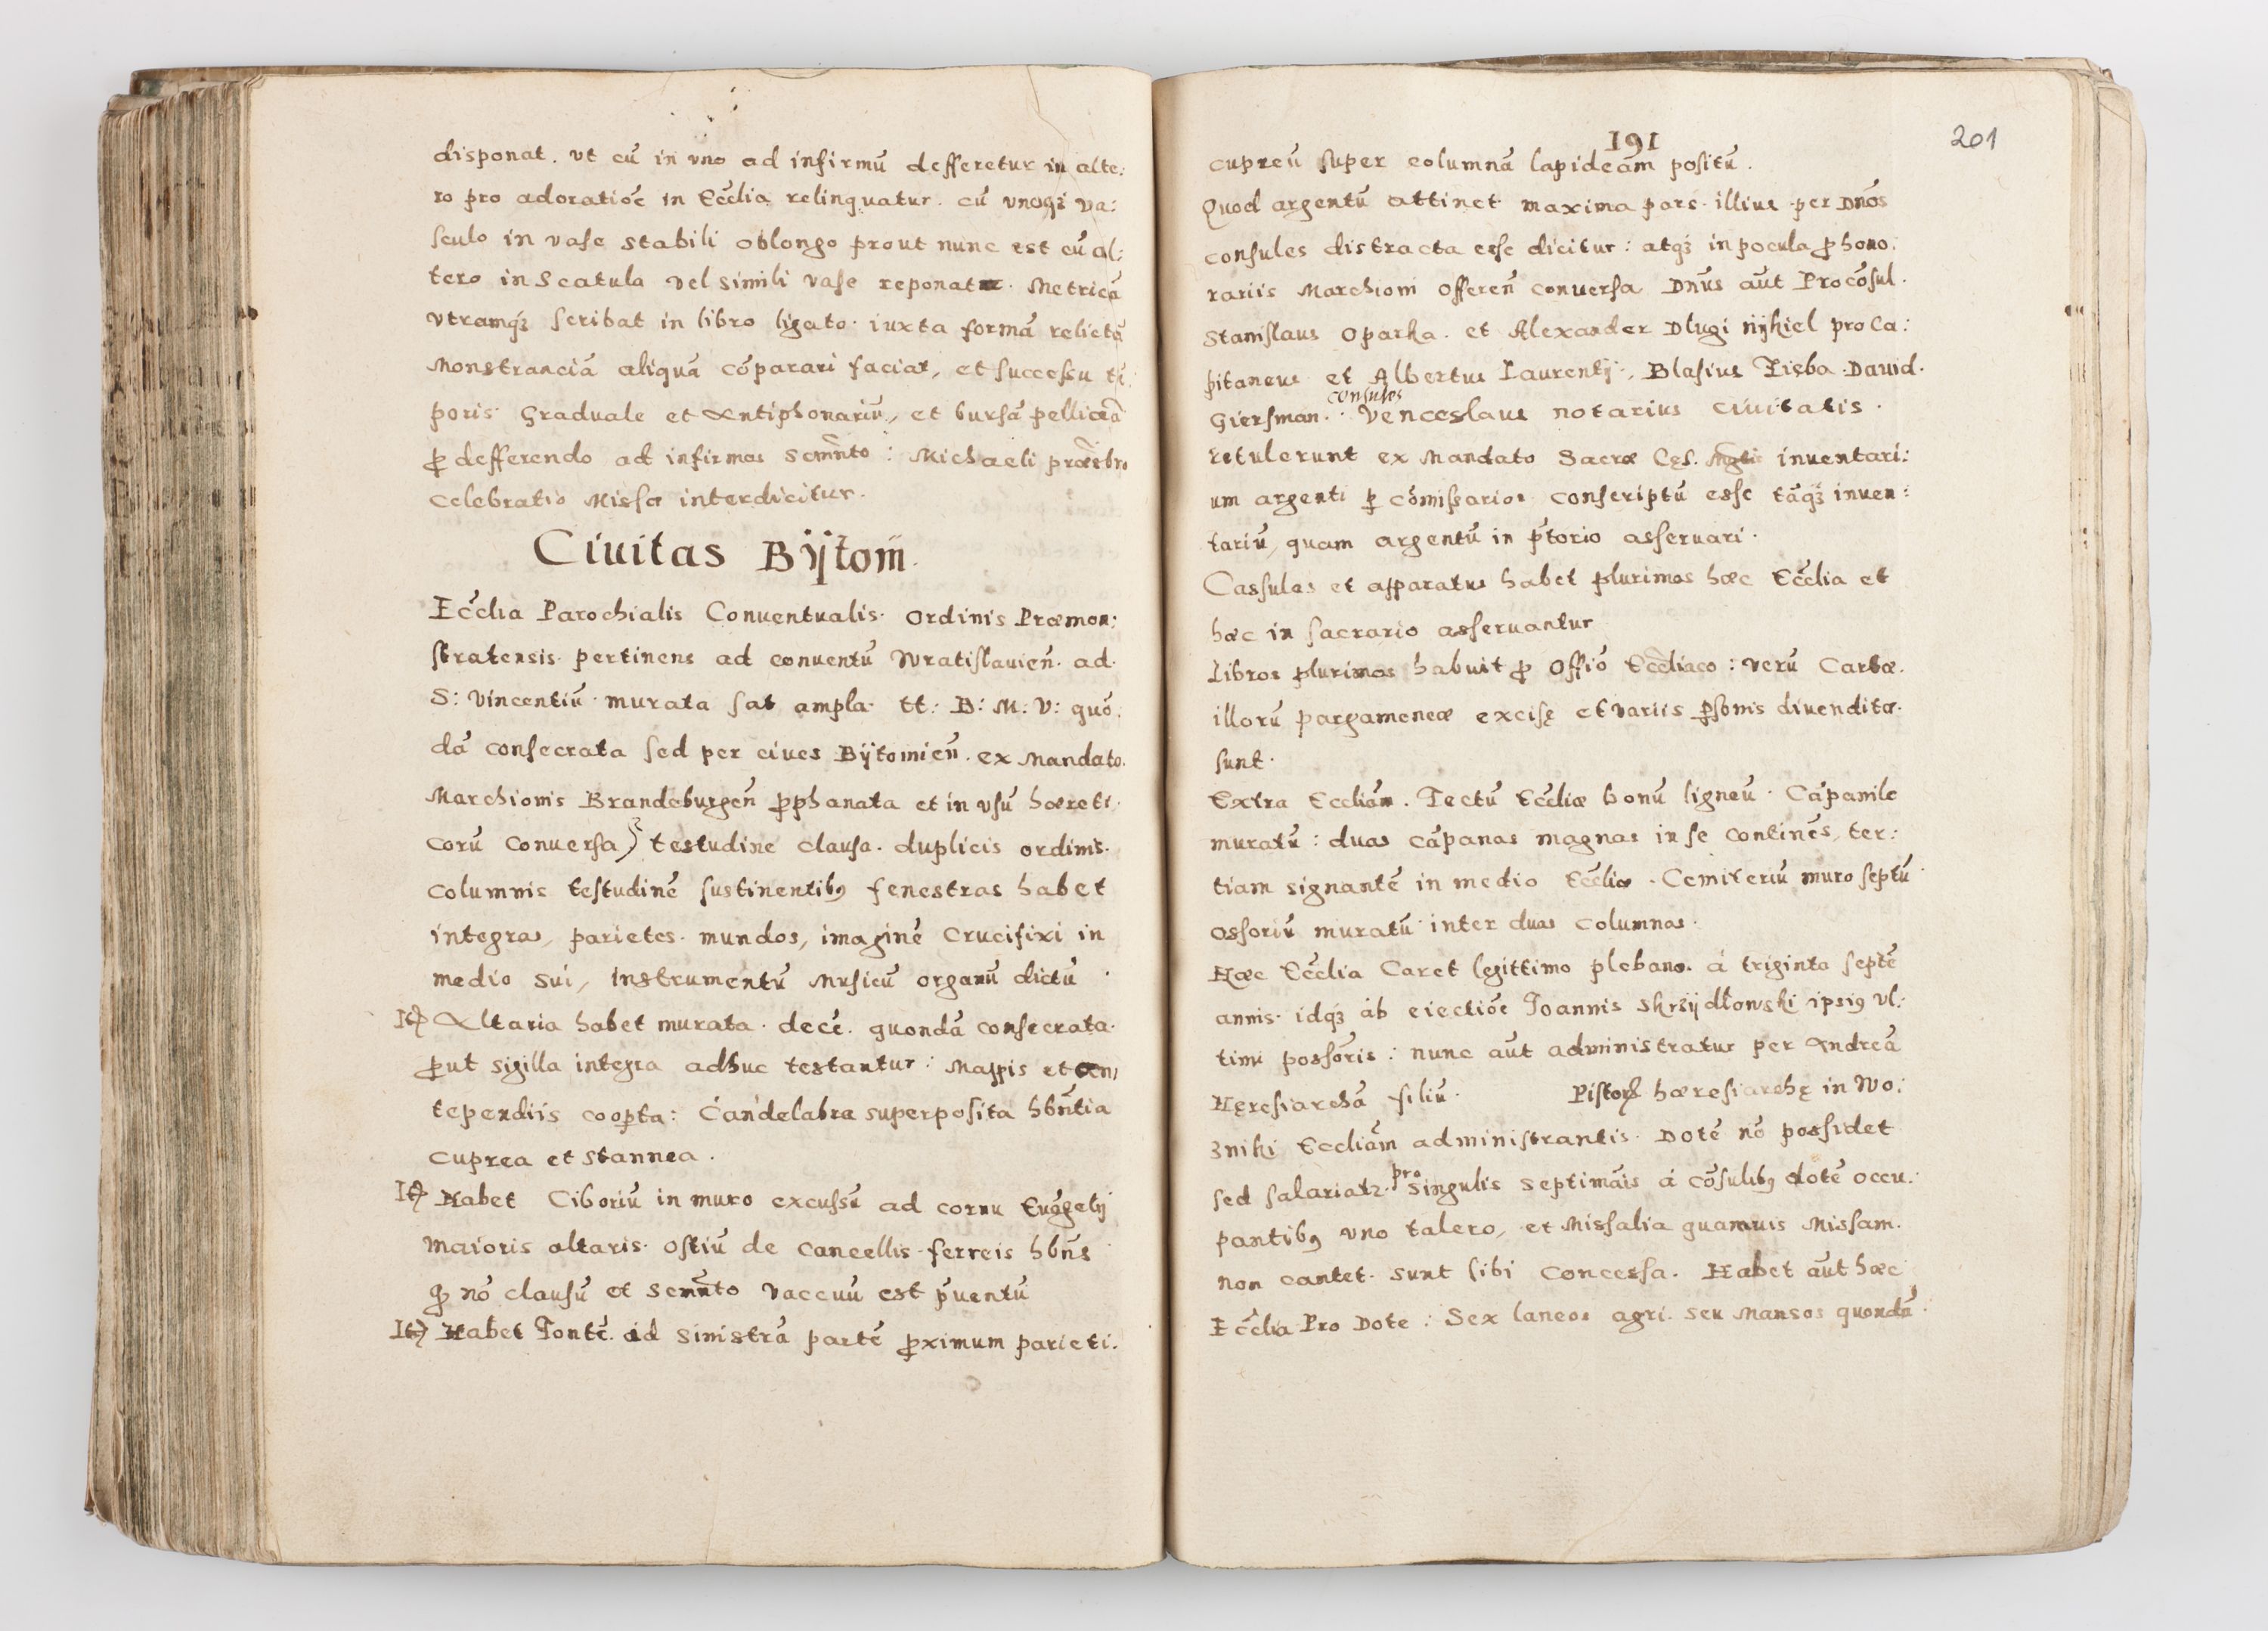 disponat. vt cū in vno ad infirmū defferetur in alte:
ro pro adoratiōe in Eccl̄ia relinquatur. cū vnoqȝ va:
sculo in vase stabili oblongo prout nunc est cū al:
tero in Scatula vel simili vase reponatur. Metricā
vtramqȝ scribat in libro ligato. iuxta formā relictā
Monstranciā aliquā cōparari faciat, et successu tē:
poris Graduale et Antiphonariū, et bursā pelliceā
ꝓ defferendo ad infirmos Scm̄nto: Michaeli præsbro
Celebratio Missæ interdicitur.
Ciuitas Bÿtom̄.
Eccl̄ia Parochialis Conuentualis. Ordinis Præmon:
stratensis. pertinens ad conuentū Wratislauien̄. ad.
S: Vincentiū. murata sat ampla. tt: B: M: V: quō:
dā consecrata sed per ciues Bÿtomien̄. ex Mandato.
Marchionis Brandeburgen̄ ꝓphanata et in vsū hæreti:
corū conuersa) testudine clausa. duplicis ordinis.
columnis testudinē sustinentibꝰ fenestras habet
integras, parietes. mundos, imaginē Crucifixi in
medio sui, Instrumentū Musicū organū dictū.
It) Altaria habet murata. decē. quondā consecrata.
ꝓut sigilla integra adhuc testantur: Mappis et an,
tependiis coop̱ta: Candelabra superposita hbn̄tia
cuprea et stannea.
It) Habet Ciboriū in muro excussū ad cornu Euāgelij
maioris altaris. ostiū de cancellis ferreis hbn̄s
qȝ nō clausū et Scm̄nto vaccuū est p̄uentū
It) Habet Fontē. ad sinistrā partē ꝓximum parieti.
191
201
cupreū super columnā lapideam positū.
Quod argentū attinet maxima pars. illius per Dn̄os
consules distracta esse dicitur: atqȝ in pocula ꝓ hono:
rariis Marchioni offeren̄ conuersa Dn̄us aūt Procōsul.
Stanislaus Oparka. et Alexander Dlugi nÿkiel pro Ca:
pitaneus et Albertus Laurentij., Blasius Zięba. Dauid.
consules
Giersman. Venceslaus notarius ciuitatis.
retulerunt ex Mandato Sacræ Cęs. Mgtis inuentari:
um argenti ꝑ cōmissarios conscriptū esse tāqȝ inuen:
tariū, quam argentū in p̄torio asseruari.
Cassulas et apparatus habet plurimos hæc Eccl̄ia et
hæc in sacrario asseruantur
Libros plurimos habuit ꝓ offiō Eccl̄iaco: verū Cartæ.
illorū pargameneæ excisę et variis ꝑsonis diuenditæ.
sunt.
Extra Eccliām. Tectū Eccl̄iæ bonū ligneū. Cāpanile
muratū: duas cāpanas magnas in se continēs, ter:
tiam signantē in medio Eccl̄iæ. Cemiteriū muro septū.
ossoriū muratū inter duas columnas.
Hæc Eccl̄ia Caret legittimo plebano. á triginta septē
annis. idqȝ ab eiectiōe Joannis Skrzÿdłowski ipsiꝰ vl:
timi possōris: nunc aūt administratur per Andreā
Hęresiarchā filiū. Pistorȝ hæresiarchę in Wo:
zniki Eccliām administrantis. Dotē nō possidet
pro
sed salariatr. singulis septimāis á cōsulibꝰ dotē occu:
pantibꝰ vno talero, et Missalia quamuis Missam.
non cantet. sunt sibi concessa. Habet aūt hæc
Eccl̄ia Pro Dote: Sex laneos agri. seu Mansos quondā.